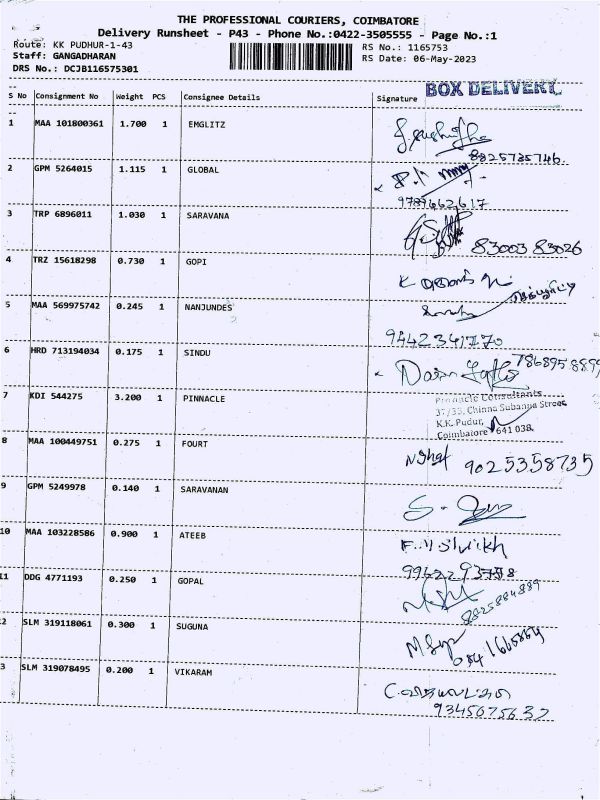 THE PROFESSIONAL COURIERS, COIMBATORE
Delivery Runsheet - P43 - Phone No.:0422-3505555 - Page No.:1
Route: KK PUDHUR-1-43 RS No.: 1165753
Staff: GANGADHARAN RS Date: 06-May-2023
DRS No.: DCJB116575301
BOX DELIVERY
S No Consignment No Weight PCS Consignee Details Signature
1 MAA 101800361 1.700 1 EMGLITZ
8825735746.
2 GPM 5264015 1.115 1 GLOBAL
9789662617
3 TRP 6896011 1.030 1 SARAVANA
83003 83026
4 TRZ 15618298 0.730 1 GOPI
5 MAA 569975742 0.245 1 NANJUNDES
9442341770
6 HRD 713194034 0.175 1 SINDU
7 KDI 544275 3.200 1 PINNACLE
Pinnacle Consultants
37/33, Chinna Subanna Street
K.K. Pudur,
Coimbatore 641 038.
8 MAA 100449751 0.275 1 FOURT
9025358735
9 GPM 5249978 0.140 1 SARAVANAN
10 MAA 103228586 0.900 1 ATEEB
11 DDG 4771193 0.250 1 GOPAL
2 SLM 319118061 0.300 1 SUGUNA
3 SLM 319078495 0.200 1 VIKARAM
9345075637